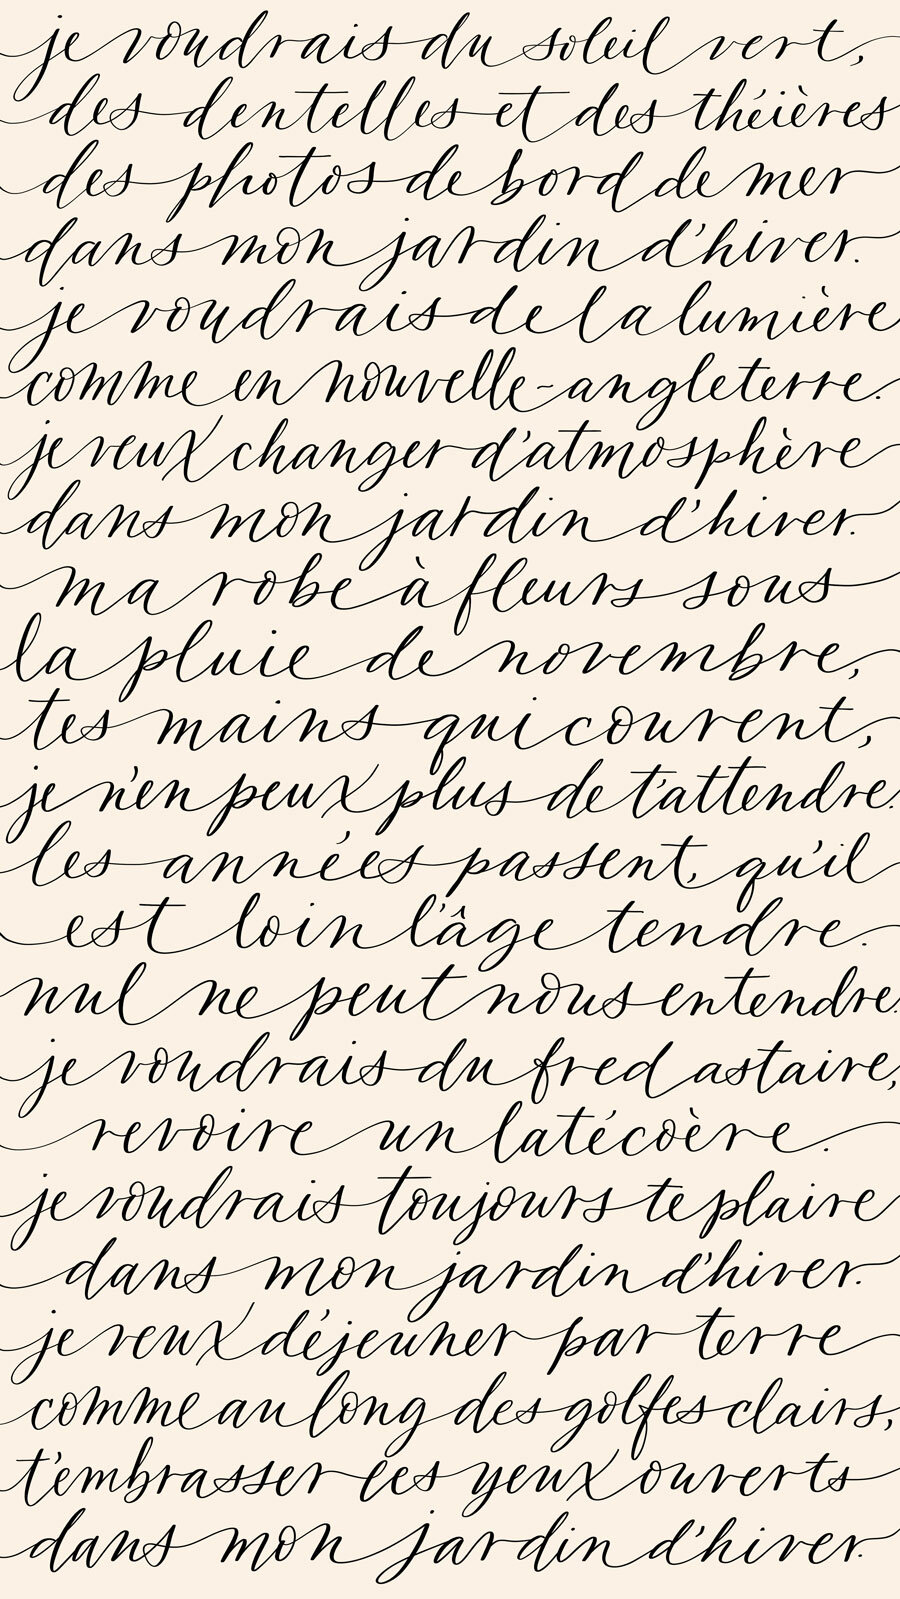 je voudrais du soleil vert,
des dentelles et des théières
des photos de bord de mer
dans mon jardin d'hiver.
je voudrais de la lumière
comme en nouvelle-angleterre.
je veux changer d'atmosphère
dans mon jardin d'hiver.
ma robe à fleurs sous
la pluie de novembre,
tes mains qui courent,
je n'en peux plus de t'attendre.
les années passent, qu'il
est loin l'âge tendre.
nul ne peut nous entendre.
je voudrais du fred astaire,
revoire un latécoère.
je voudrais toujours te plaire
dans mon jardin d'hiver.
je veux déjeuner par terre
comme au long des golfes clairs,
t'embrasser les yeux ouverts
dans mon jardin d'hiver.